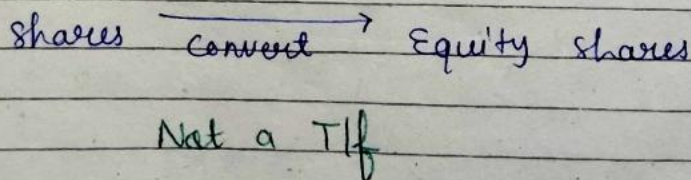 shares convert Equity shares
Not a T/f